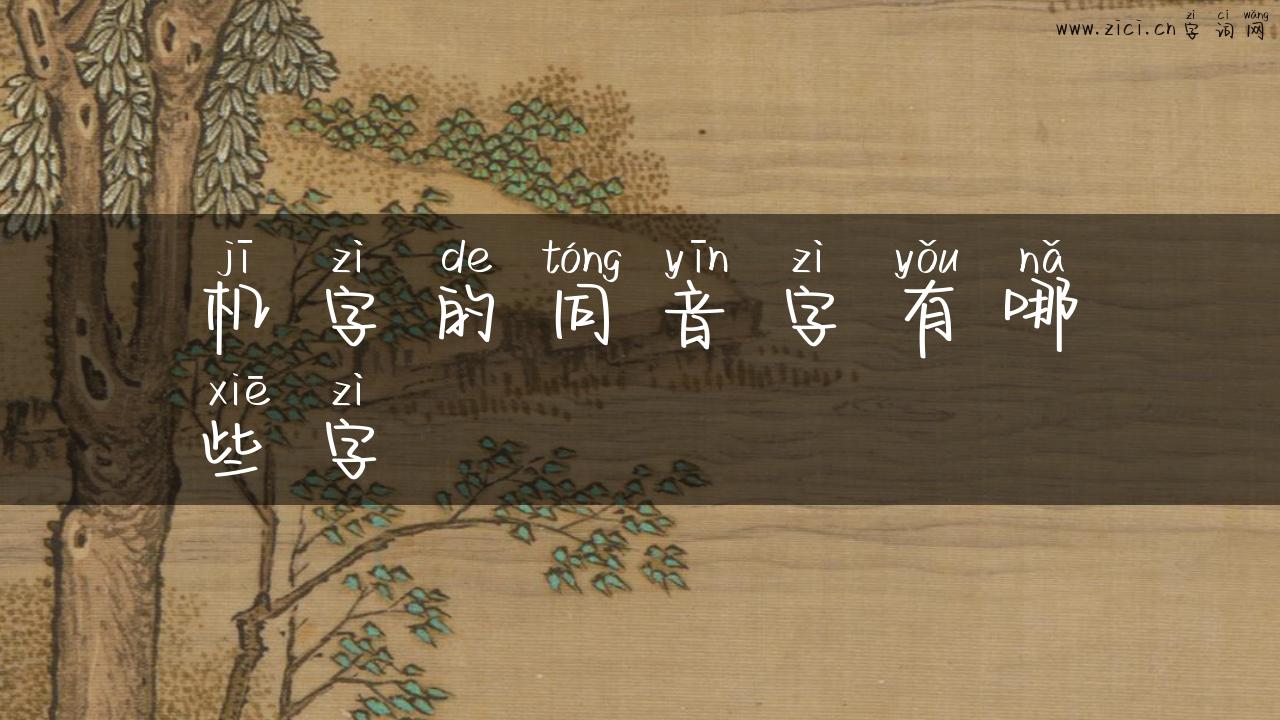 zì cí wǎng
www.zici.cn 字 词 网
jī zì de tóng yīn zì yǒu nǎ
机 字 的 同 音 字 有 哪
xiē zì
些 字